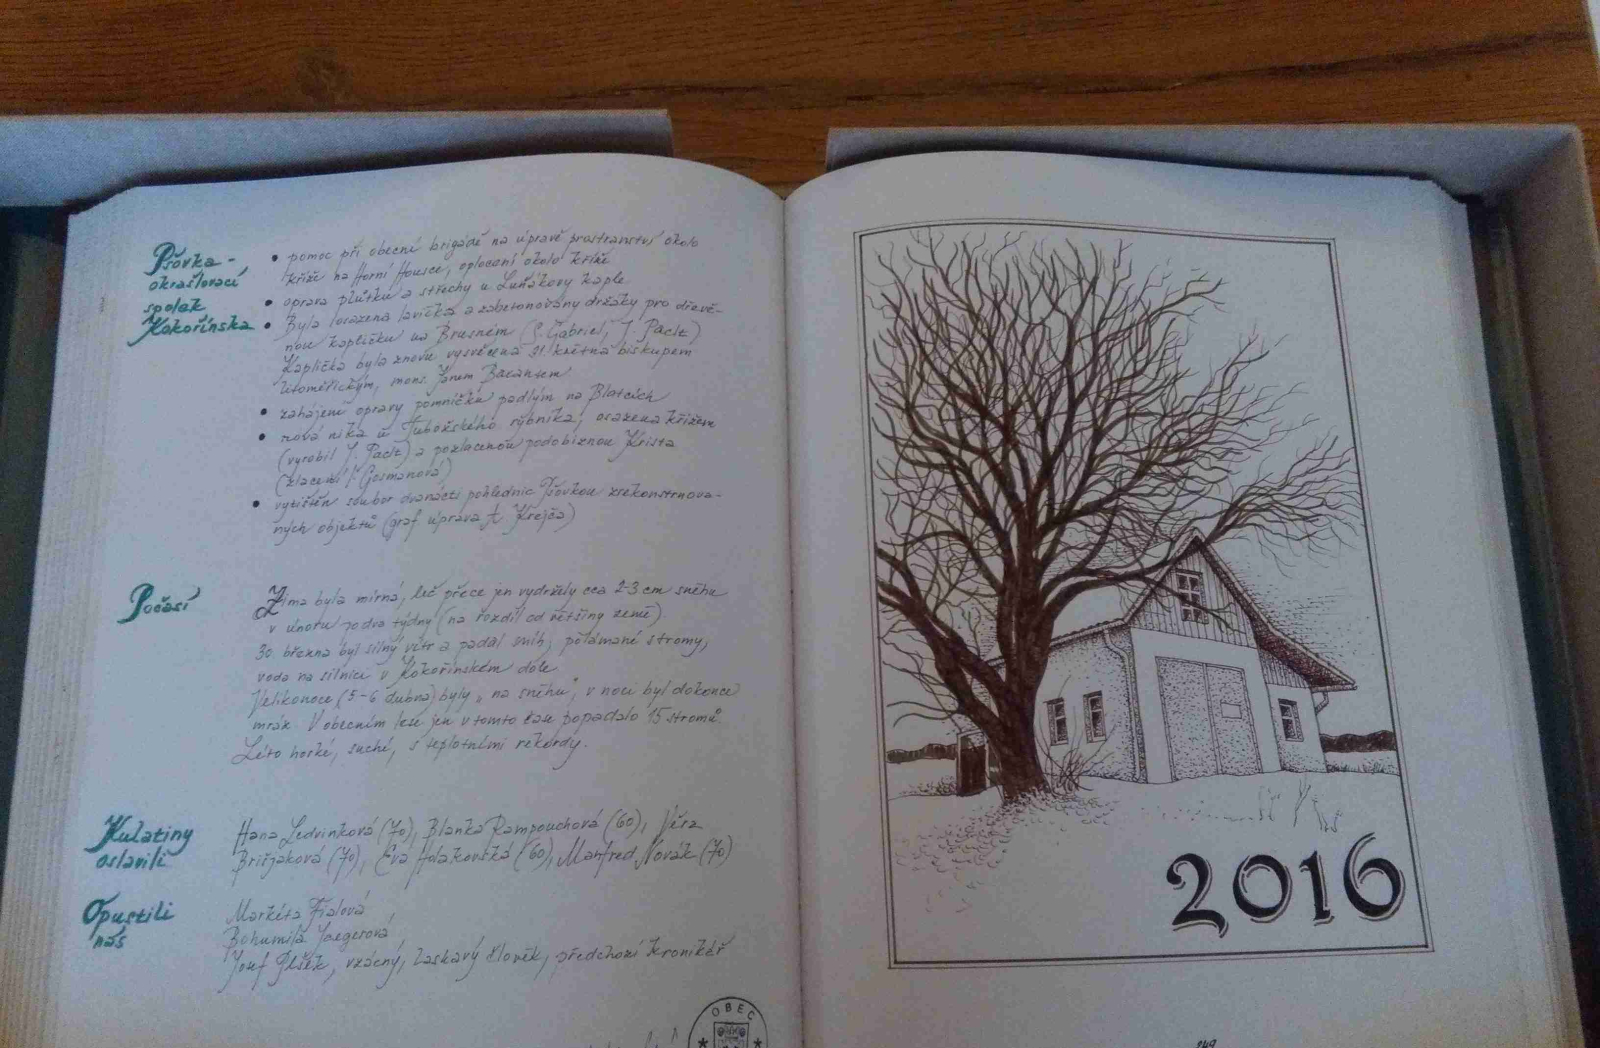 Pšovka -
okrašlovací
spolek
Kokořínska
• pomoc při obecní brigádě na úpravě prostranství okolo
kříže na Horní Housce, oplocení okolo kříže
• oprava plůtku a střechy u Luňákovy kaple
• Byla osazena lavička a zabetonovány držáky pro dřevě-
nou kapličku na Brusném (Gabriel, J. Paclt)
Kaplička byla znovu vysvěcena 31. května biskupem
litoměřickým, mons. Janem Baxantem
• zahájení opravy pomníčku padlým na Blatcích
• nová nika u Tubožského rybníka, osazena křížem
(vyrobil J. Paclt) a pozlacenou podobiznou Krista
(zlacení Gosmanová)
• vytištěn soubor dvanácti pohlednic Pšovkou zrekonstruova-
ných objektů (graf. úprava A. Krejča)
Počasí
Zima byla mírná, leč přece jen vydržely cca 2-3 cm sněhu
v únoru po dva týdny (na rozdíl od většiny země)
30 března byl silný vítr a padal sníh, polámané stromy,
voda na silnici v Kokořínském dole
Velikonoce (5-6 dubna) byly „na sněhu", v noci byl dokonce
mráz. V obecním lese jen v tomto čase popadalo 15 stromů.
Léto horké, suché, s teplotními rekordy.
Kulatiny
oslavili
Hana Ledvinková (70), Blanka Rampouchová (60), Věra
Bršjaková (70), Eva Holakovská (60), Manfred Novák (70)
Opustili
nás
Markéta Fialová
Bohumila Jaegerová
Josef Plšek, vzácný, laskavý člověk, předchozí kronikář
OBEC
2016
249